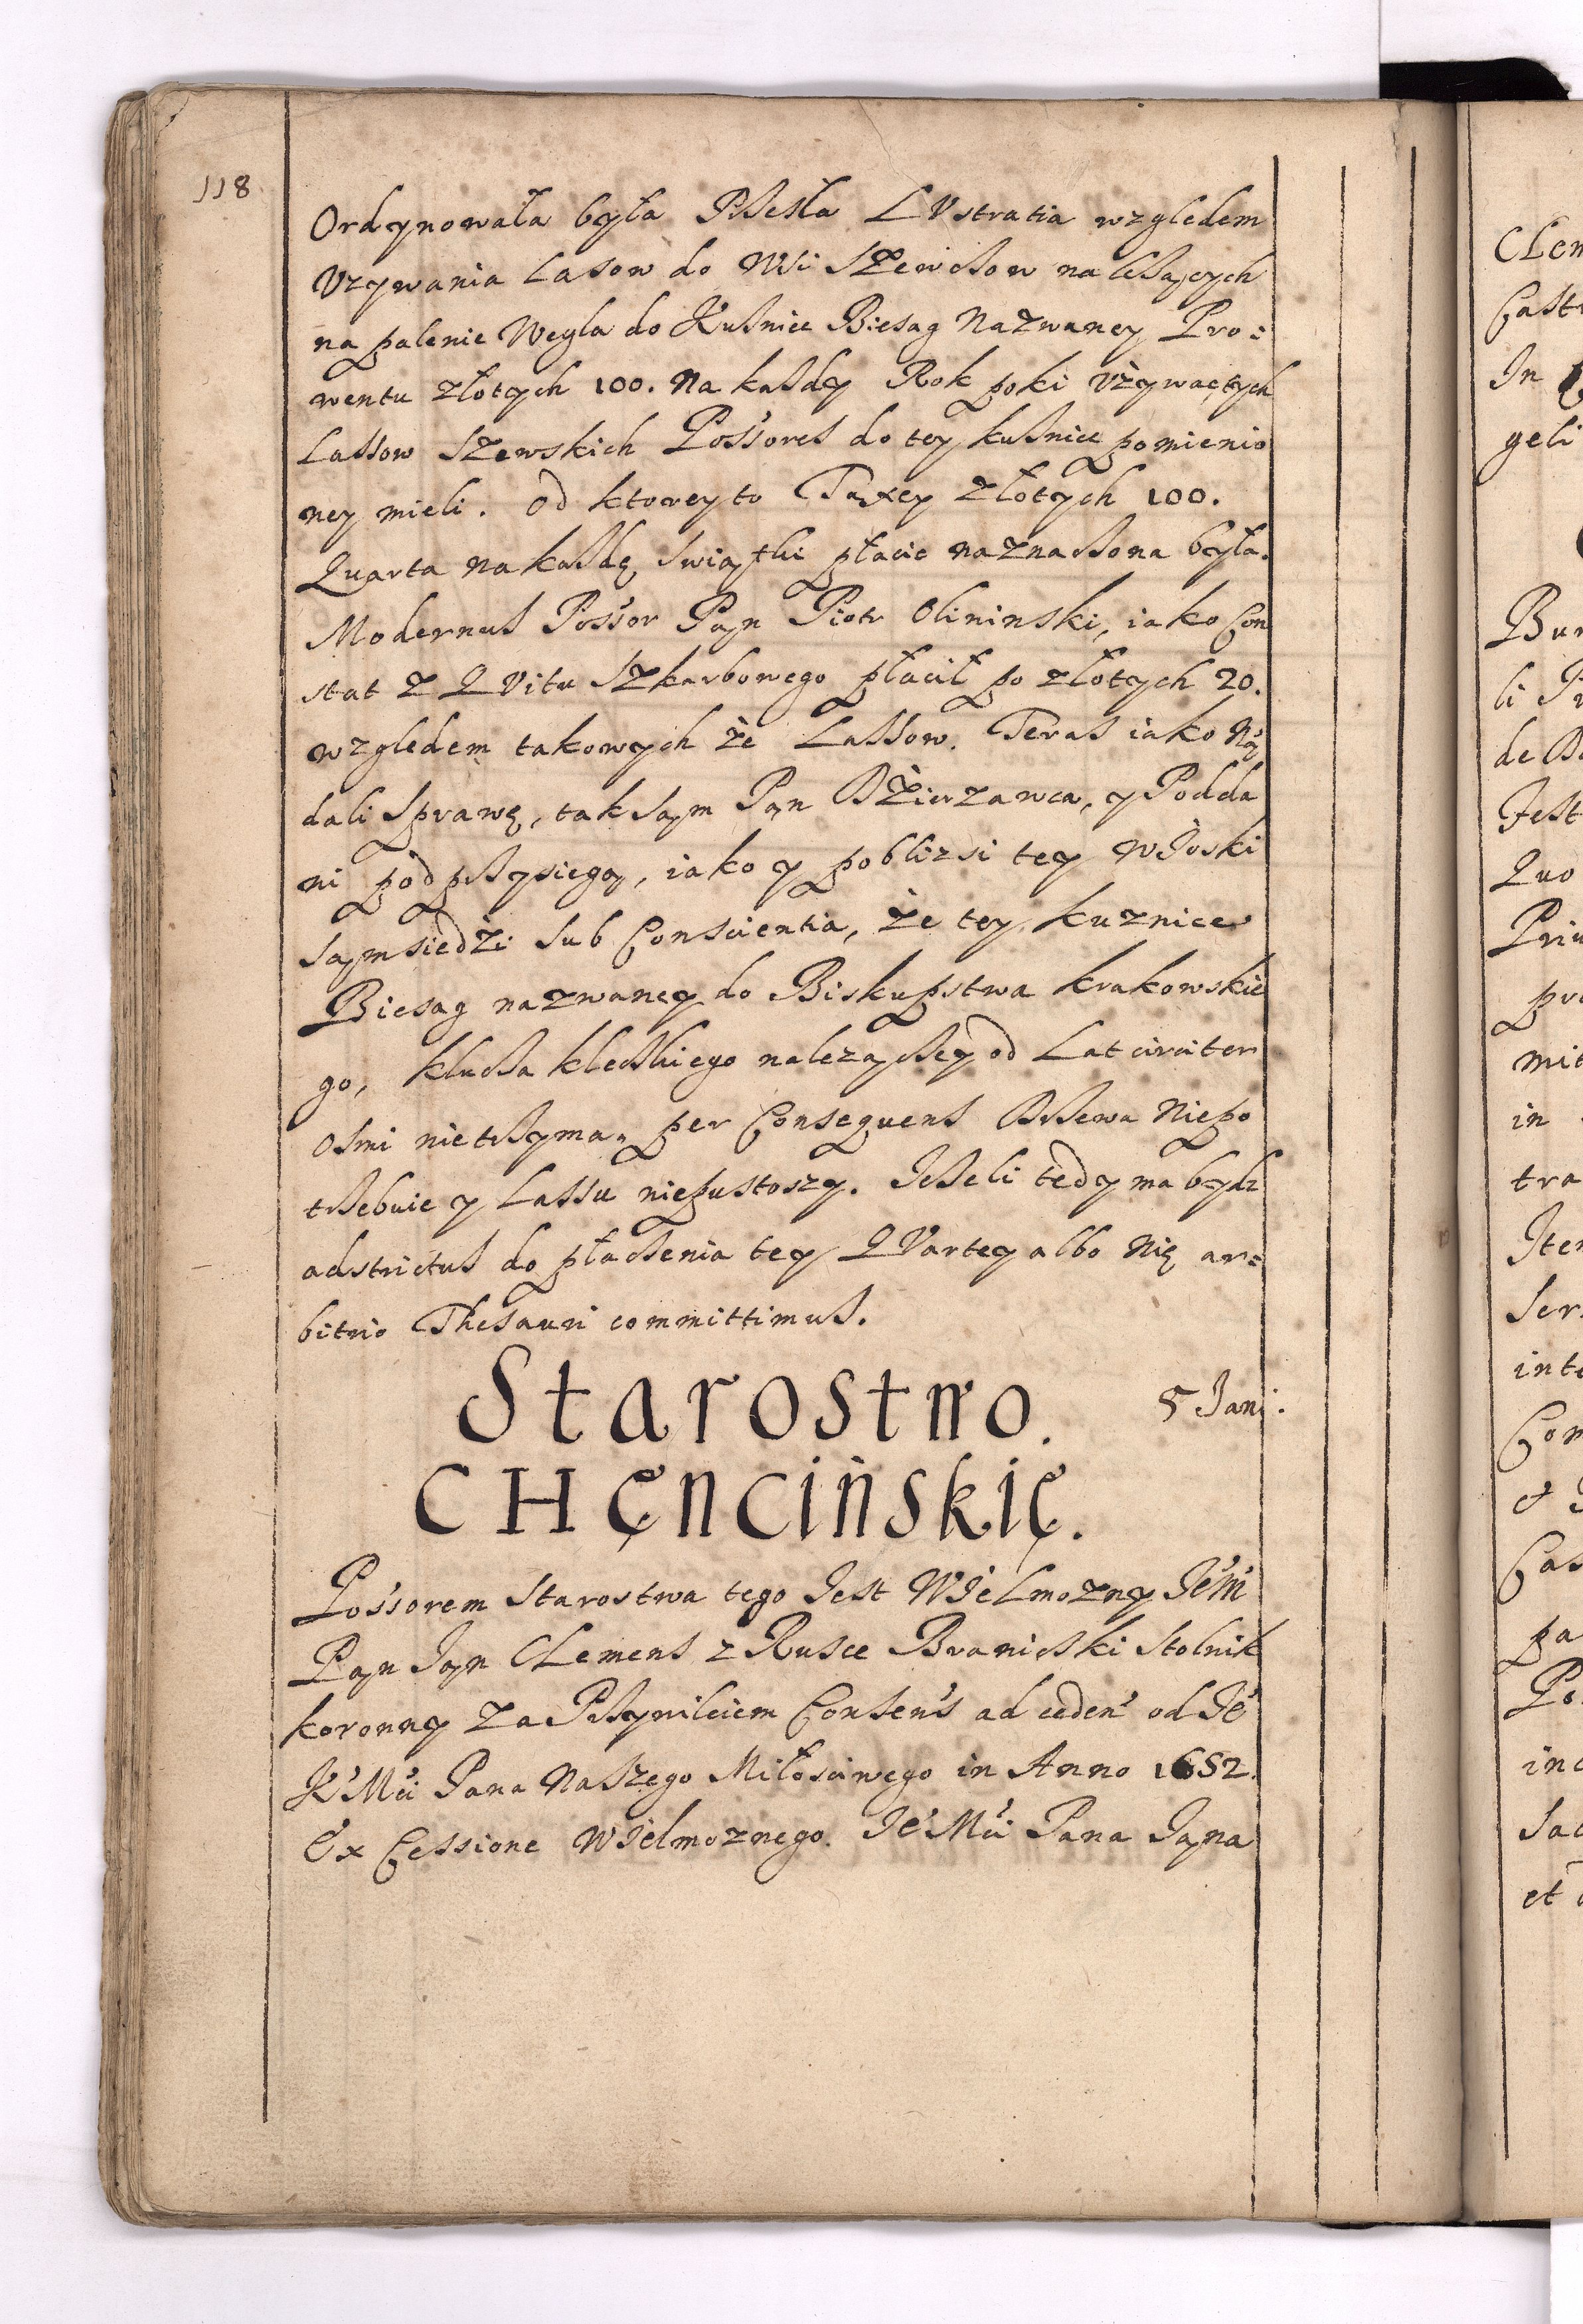 118
Ordynowała była Przeszła LVstratia względem
Vzywania Lasow do Wsi Szewczow nalezących
na palenie Węgla do Kuznice Biesag Nazwaney Pro:
wentu złotych 100. Na kazdy Rok poki Vzywac tych
Lassow Szewskich Possores do tey kuznice pomienio
ney mieli. Od ktorey to Taxey złotych 100.
Quarta na kazdę swiątki płacic naznaczona była.
Modernus Possor Pan Piotr Olininski, iako Con
stat z QVitu Szkarbowego płacił po złotych 20.
względem takowych że Lassow. Teras iako Ną
dali Sprawę, tak sam Pan Dzierzawca, y Podda
ni pod przysięgą, iako y poblizsi tey Wioski
sąmsiedzi sub Conscientia, że tey kuznice
Biesag nazwaney do Biskupstwa krakowskie
go, klucza kleckiego nalezączey od Lat circiter
osmi nietrzyma, per Consequens Drzewa Niepo
trzebuie y Lassu niepustoszy. Jezeli tedy ma bydz
adstrictus do płaczenia tey QVartey albo Nię ar=
bitrio Thesauri committimus.
Starostwo. 5 Jani.
CHĘnciński​ę.
Possorem Starostwa tego Jest WielmoznyJeM
Pan Jan CLemens z Rusce Branicki Stolnik
koronny za Przywileiem Consens ad ceden od Je
K Mci Pana Naszego Miłosciwego in Anno 1652.
Ex Cessione Wielmoznego Je Mci Pana Jana
CLem
In
geli
Quo
in
et